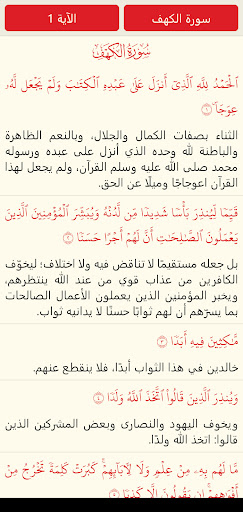 سورة الكهف
الآية 1
سُورَةُ الكَهْفِ
ٱلۡحَمۡدُ لِلَّهِ ٱلَّذِيٓ أَنزَلَ عَلَىٰ عَبۡدِهِ ٱلۡكِتَٰبَ وَلَمۡ يَجۡعَل لَّهُۥ
عِوَجَاۜ ١
الثناء بصفات الكمال والجلال، وبالنعم الظاهرة
والباطنة لله وحده الذي أنزل على عبده ورسوله
محمد صلى الله عليه وسلم القرآن، ولم يجعل لهذا
القرآن اعوجاجًا وميلًا عن الحق.
قَيِّمٗا لِّيُنذِرَ بَأۡسٗا شَدِيدٗا مِّن لَّدُنۡهُ وَيُبَشِّرَ ٱلۡمُؤۡمِنِينَ ٱلَّذِينَ
يَعۡمَلُونَ ٱلصَّٰلِحَٰتِ أَنَّ لَهُمۡ أَجۡرًا حَسَنٗا ٢
بل جعله مستقيمًا لا تناقض فيه ولا اختلاف؛ ليخوّف
الكافرين من عذاب قوي من عند الله ينتظرهم،
ويخبر المؤمنين الذين يعملون الأعمال الصالحات
بما يسرّهم أن لهم ثوابًا حسنًا لا يدانيه ثواب.
مَّٰكِثِينَ فِيهِ أَبَدٗا ٣
خالدين في هذا الثواب أبدًا، فلا ينقطع عنهم.
وَيُنذِرَ ٱلَّذِينَ قَالُواْ ٱتَّخَذَ ٱللَّهُ وَلَدٗا ٤
ويخوف اليهود والنصارى وبعض المشركين الذين
قالوا: اتخذ الله ولدًا.
مَّا لَهُم بِهِۦ مِنۡ عِلۡمٖ وَلَا لِأٓبَآئِهِمۡۚ كَبُرَتۡ كَلِمَةٗ تَخۡرُجُ مِنۡ
أَفۡوَٰهِهِمۡۚ إِن يَقُولُونَ إِلَّا كَذِبٗا